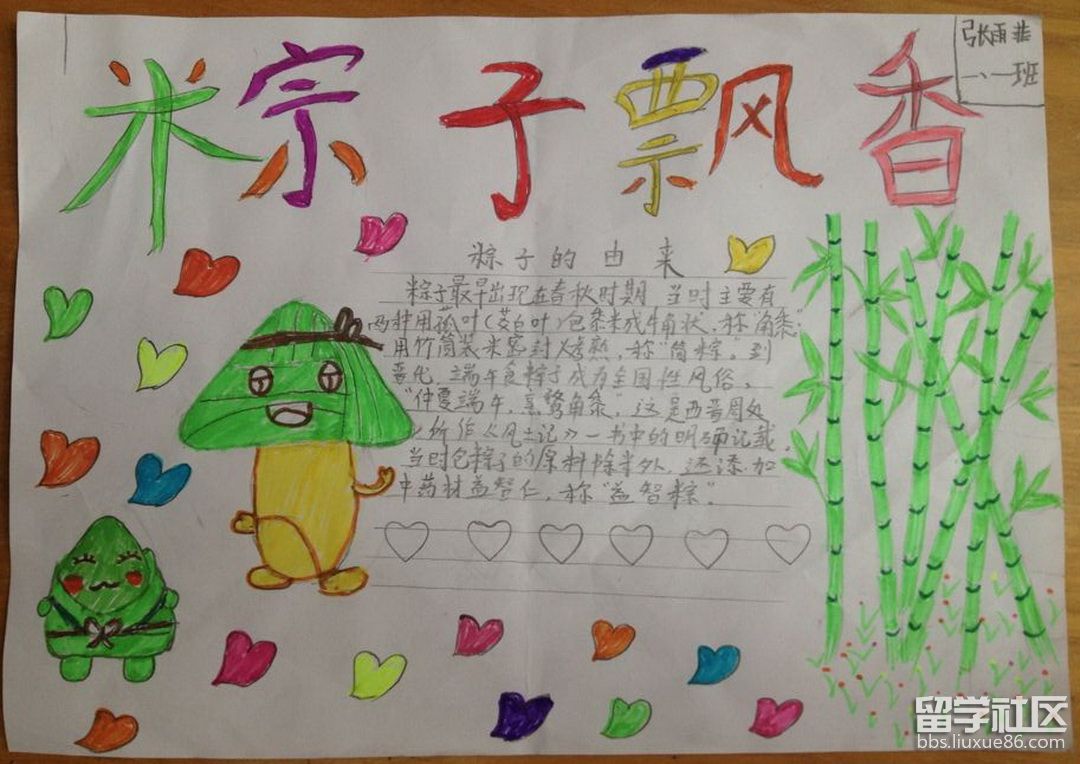 粽子飘香
张雨非
一、一班
粽子的由来
粽子最早出现在春秋时期,当时主要有
两种用菰叶(茭白叶)包黍米成牛角状,称"角黍";
用竹筒装米密封烤熟,称"筒粽"。到
晋代,端午食粽子成为全国性风俗。
"仲夏端午,烹鹜角黍",这是西晋周处
所作《风土记》一书中的明确记载,
当时包粽子的原料除米外,还添加
中药材益智仁,称"益智粽"。
留学社区
bbs.liuxue86.com